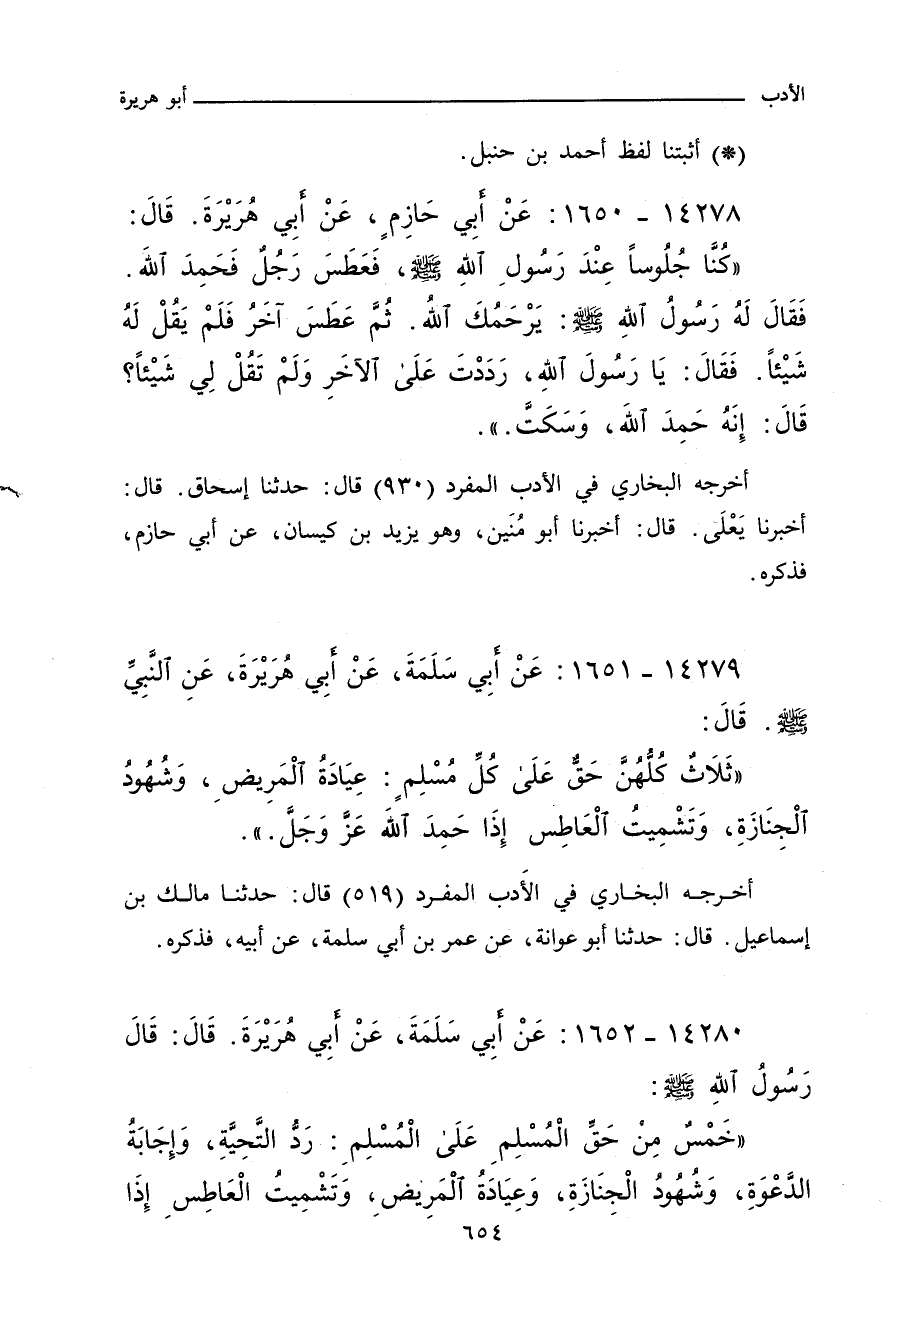 الأدب ــــــــــ أبو هريرة
(*) أثبتنا لفظ أحمد بن حنبل.
١٤٢٧٨ - ١٦٥٠: عَنْ أَبِي حَازِمٍ، عَنْ أَبِي هُرَيْرَةَ. قَالَ:
«كُنَّا جُلُوساً عِنْدَ رَسُولِ ٱللهِ ﷺ، فَعَطَسَ رَجُلٌ فَحَمِدَ ٱللهَ.
فَقَالَ لَهُ رَسُولُ ٱللهِ ﷺ: يَرْحَمُكَ ٱللهُ. ثُمَّ عَطَسَ آخَرُ فَلَمْ يَقُلْ لَهُ
شَيْئاً. فَقَالَ: يَا رَسُولَ ٱللهِ، رَدَدْتَ عَلَىٰ ٱلآخَرِ وَلَمْ تَقُلْ لِي شَيْئاً؟
قَالَ: إِنَّهُ حَمِدَ ٱللهَ، وَسَكَتَّ.».
أخرجه البخاري في الأدب المفرد (٩٣٠) قال: حدثنا إسحاق. قال:
أخبرنا يَعْلَى. قال: أخبرنا أبو مُنَين، وهو يزيد بن كيسان، عن أبي حازم،
فذكره.
١٤٢٧٩ - ١٦٥١: عَنْ أَبِي سَلَمَةَ، عَنْ أَبِي هُرَيْرَةَ، عَنِ ٱلنَّبِيِّ
ﷺ. قَالَ:
«ثَلَاثٌ كُلُّهُنَّ حَقٌّ عَلَىٰ كُلِّ مُسْلِمٍ: عِيَادَةُ ٱلْمَرِيضِ، وَشُهُودُ
ٱلْجِنَازَةِ، وَتَشْمِيتُ ٱلْعَاطِسِ إِذَا حَمِدَ ٱللهَ عَزَّ وَجَلَّ.».
أخرجه البخاري في الأدب المفرد (٥١٩) قال: حدثنا مالك بن
إسماعيل. قال: حدثنا أبو عوانة، عن عمر بن أبي سلمة، عن أبيه، فذكره.
١٤٢٨٠ - ١٦٥٢: عَنْ أَبِي سَلَمَةَ، عَنْ أَبِي هُرَيْرَةَ. قَالَ: قَالَ
رَسُولُ ٱللهِ ﷺ:
«خَمْسٌ مِنْ حَقِّ الْمُسْلِمِ عَلَىٰ الْمُسْلِمِ: رَدُّ التَّحِيَّةِ، وَإِجَابَةُ
الدَّعْوَةِ، وَشُهُودُ الْجِنَازَةِ، وَعِيَادَةُ ٱلْمَرِيضِ، وَتَشْمِيتُ الْعَاطِسِ إِذَا
٦٥٤